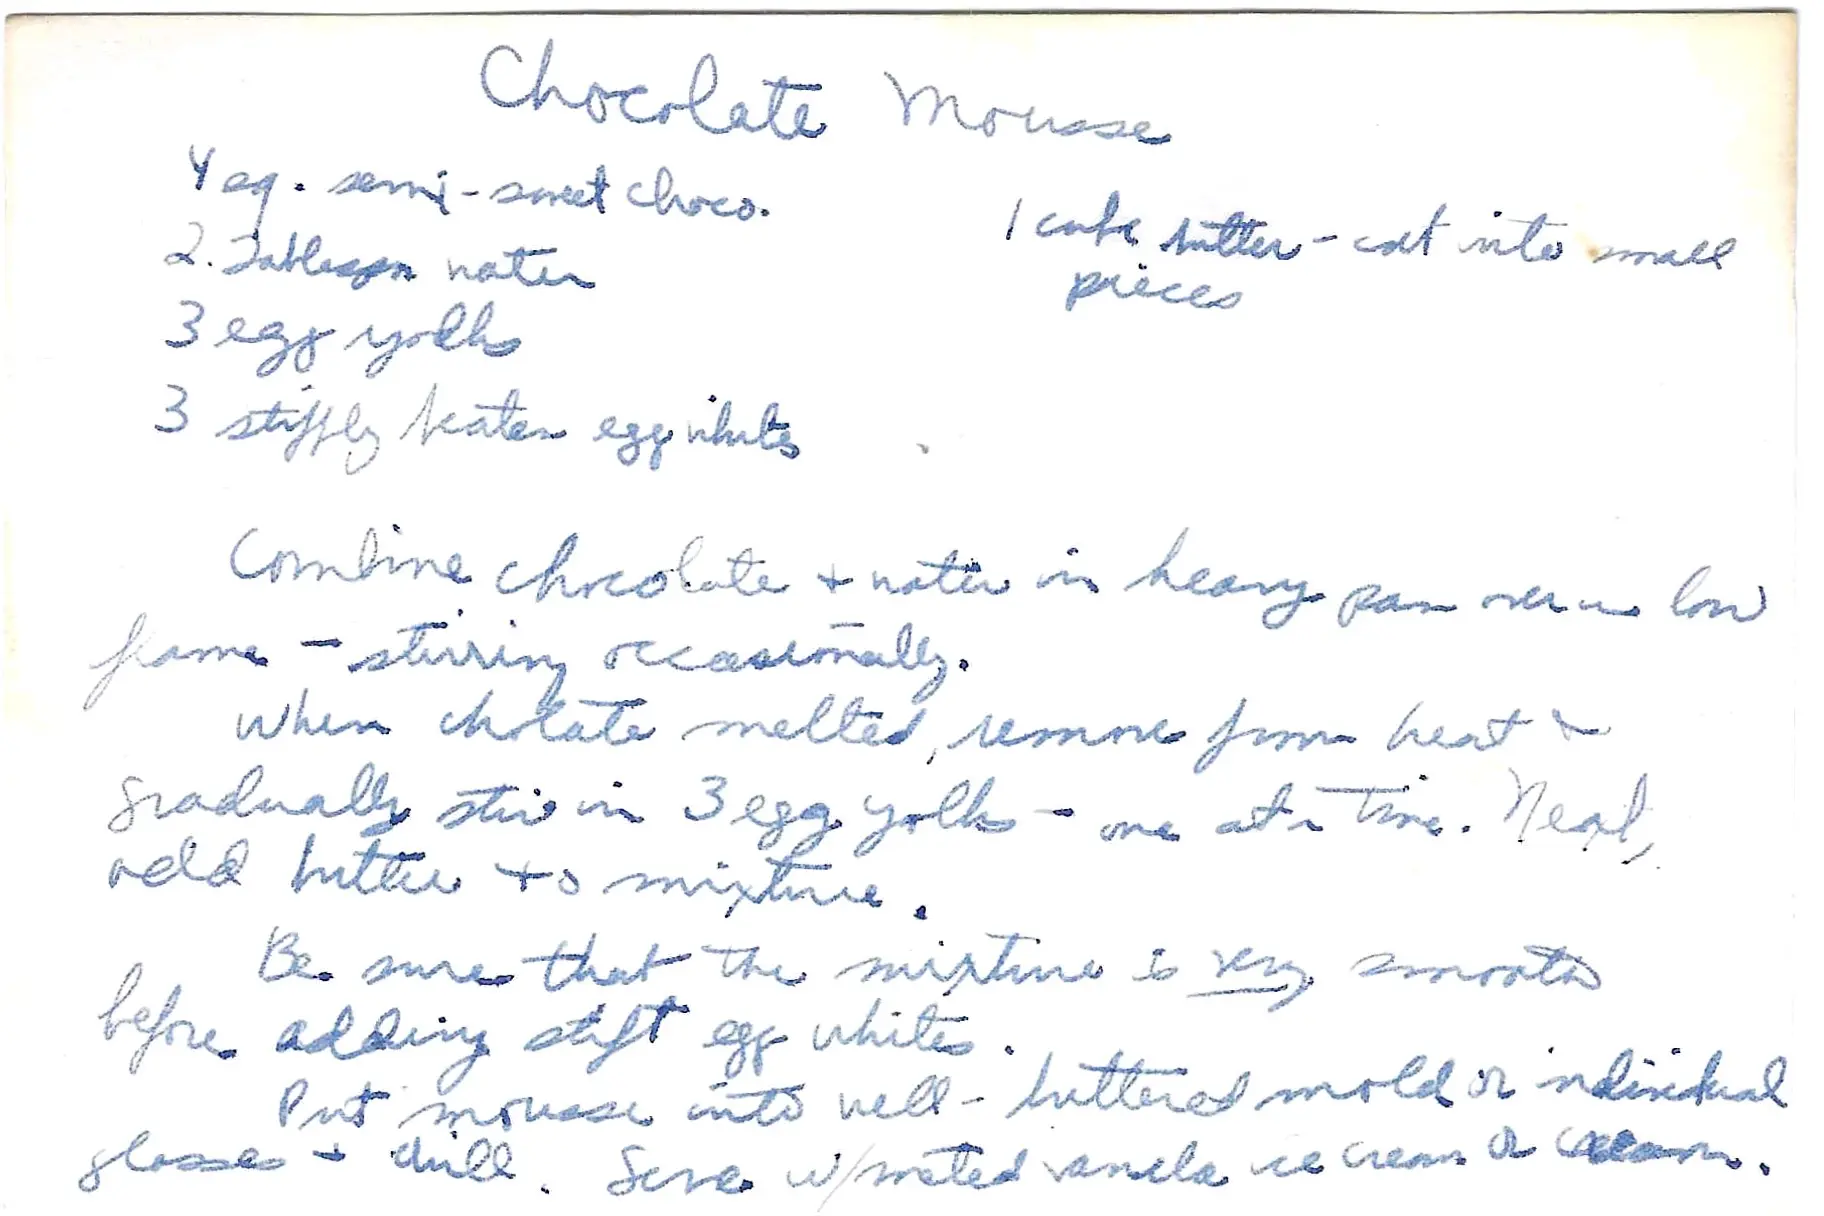 Chocolate Mousse
4 sq. semi-sweet choco.
2. Tablespn water
3 egg yolks
3 stiffly beaten egg whites
1 cube butter - cut into small
pieces
Combine chocolate + water in heavy pan over low
flame - stirring occasionally.
When cholate melted, remove from heat &
gradually stir in 3 egg yolks - one at a time. Next,
add butter to mixture.
Be sure that the mixture is very smooth
before adding stift egg whites.
Put mousse into well-buttered mold or individual
glasses + chill. Serve w/ melted vanela ice cream or cream.